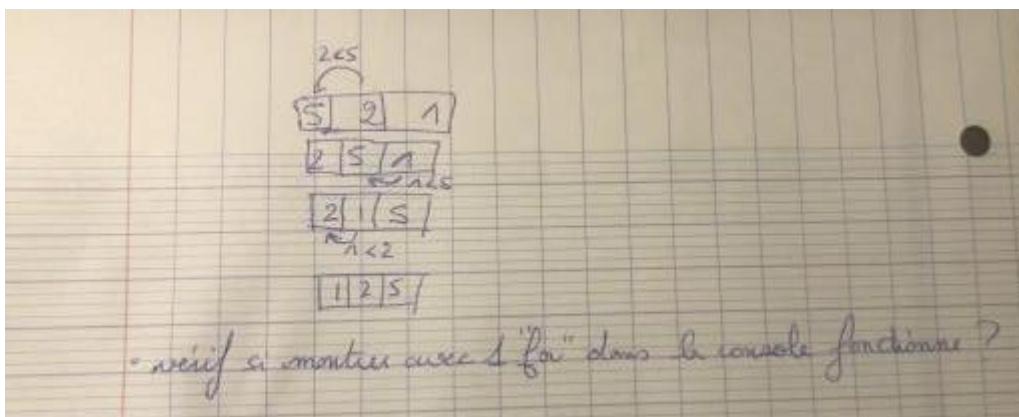 2<5
5 2 1
2 5 1
1<5
2 1 5
1<2
1 2 5
- vérif si montrer avec 1 "for" dans la console fonctionne ?